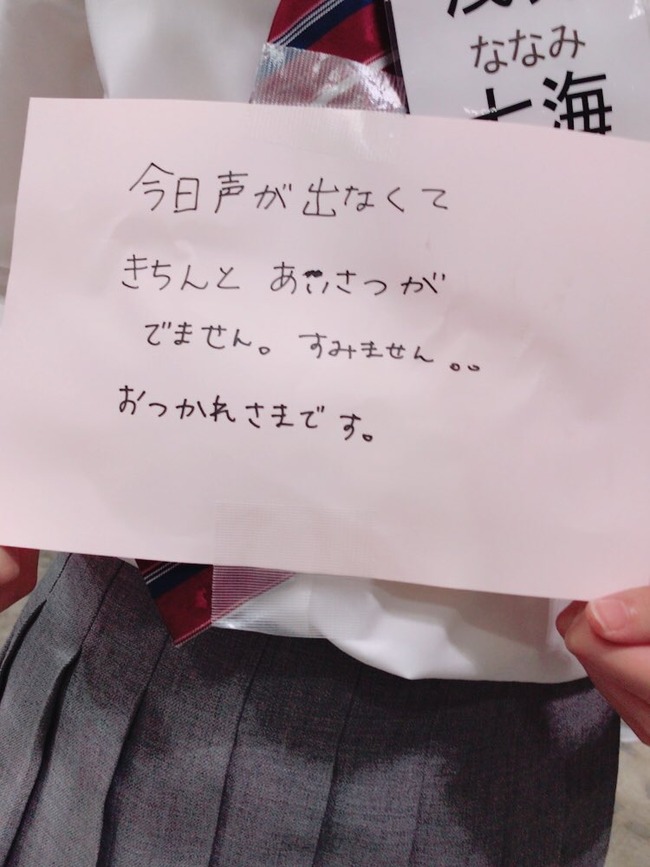 ななみ
七海
今日声が出なくて
きちんと あいさつが
でません。 すみません。。
おつかれさまです。